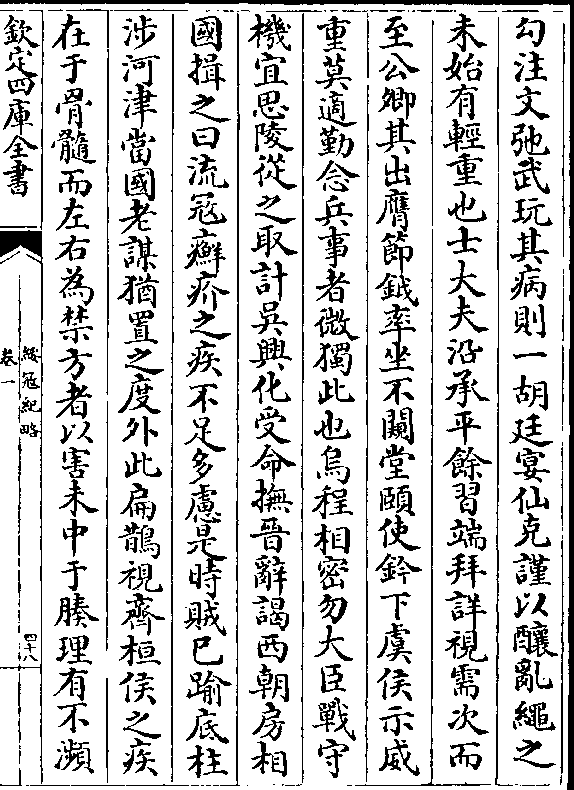 勾注文弛武玩其病則一胡廷宴仙克謹以釀亂繩之
未始有輕重也士大夫沿承平餘習端拜詳視需次而
至公卿其出膺節鉞率坐不闚堂頤使鈐下虞侯示威
重莫適勤念兵事者微獨此也烏程相密勿大臣戰守
機宜思陵從之取計吳興化受命撫晉辭謁西朝房相
國揖之曰流冦癬疥之疾不足多慮是時賊已踰底柱
涉河津當國老謀猶置之度外此扁鵲視齊桓侯之疾
在于骨髓而左右為禁方者以害未中于腠理有不瀕
欽定四庫全書
綏冦紀略
卷一
四十八